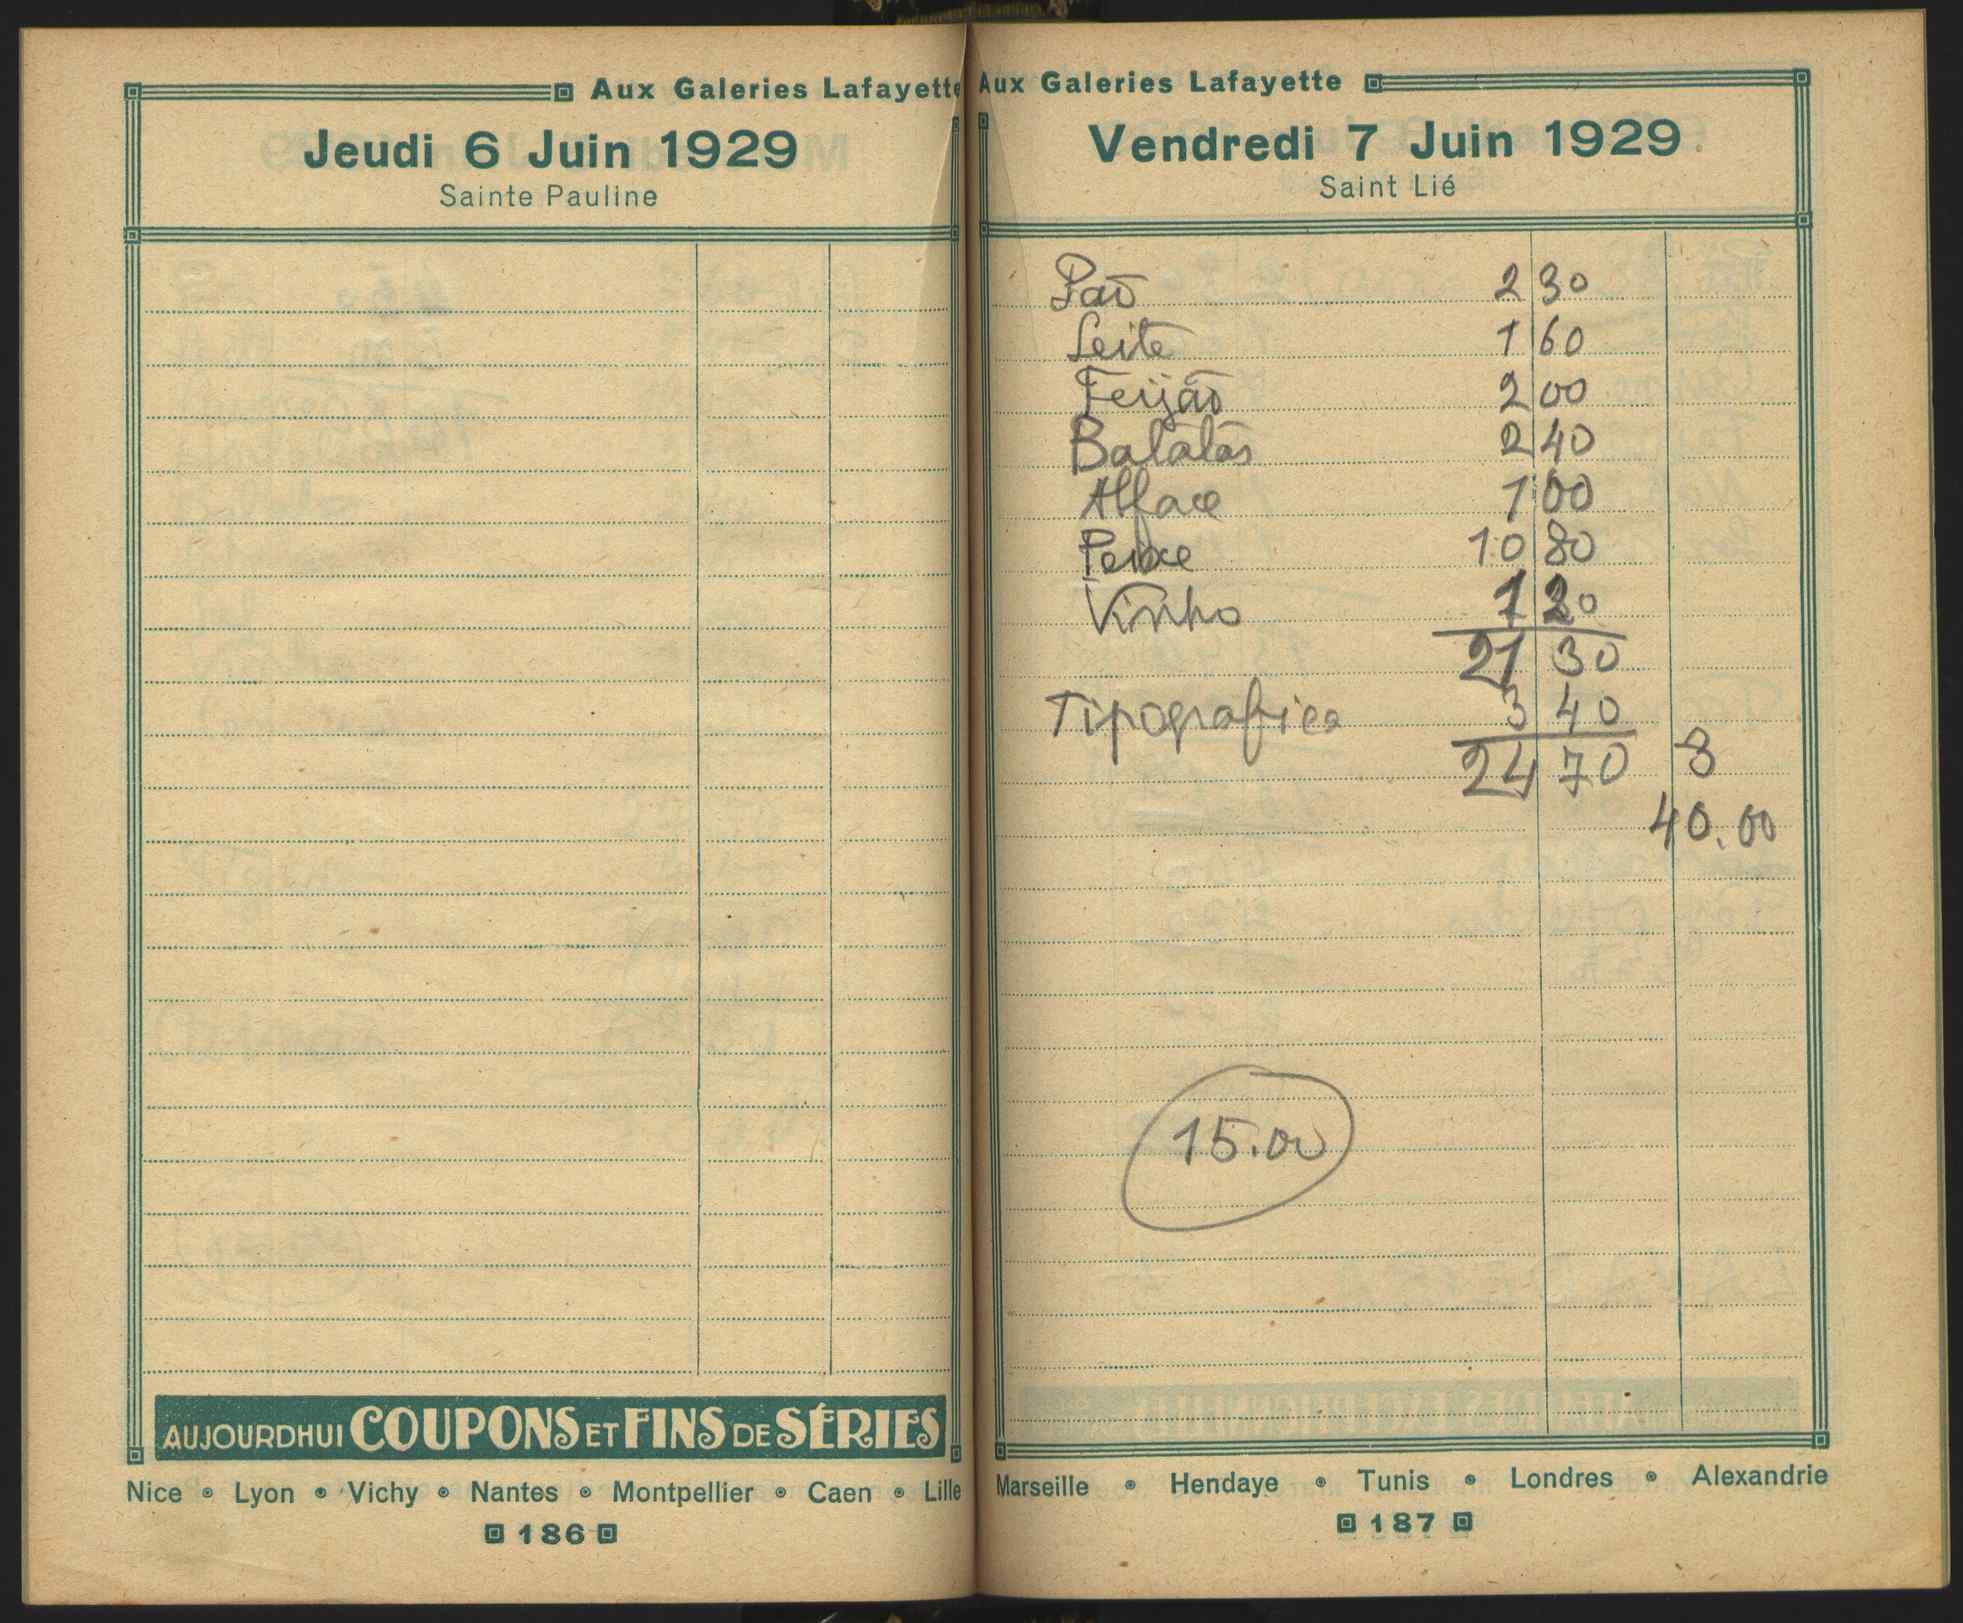 Aux Galeries Lafayette
Jeudi 6 Juin 1929
Sainte Pauline
AUJOURDHUI COUPONS ET FINS DE SÉRIES
Nice • Lyon • Vichy • Nantes • Montpellier • Caen • Lille
186
Aux Galeries Lafayette
Vendredi 7 Juin 1929
Saint Lié
Pão 2 30
Leite 1 60
Feijão 2 00
Batatas 2 40
Alface 1 00
Peixe 10 80
Vinho 1 20
21 30
Tipografica 3 40
24 70 8
40.00
15.00
Marseille • Hendaye • Tunis • Londres • Alexandrie
187